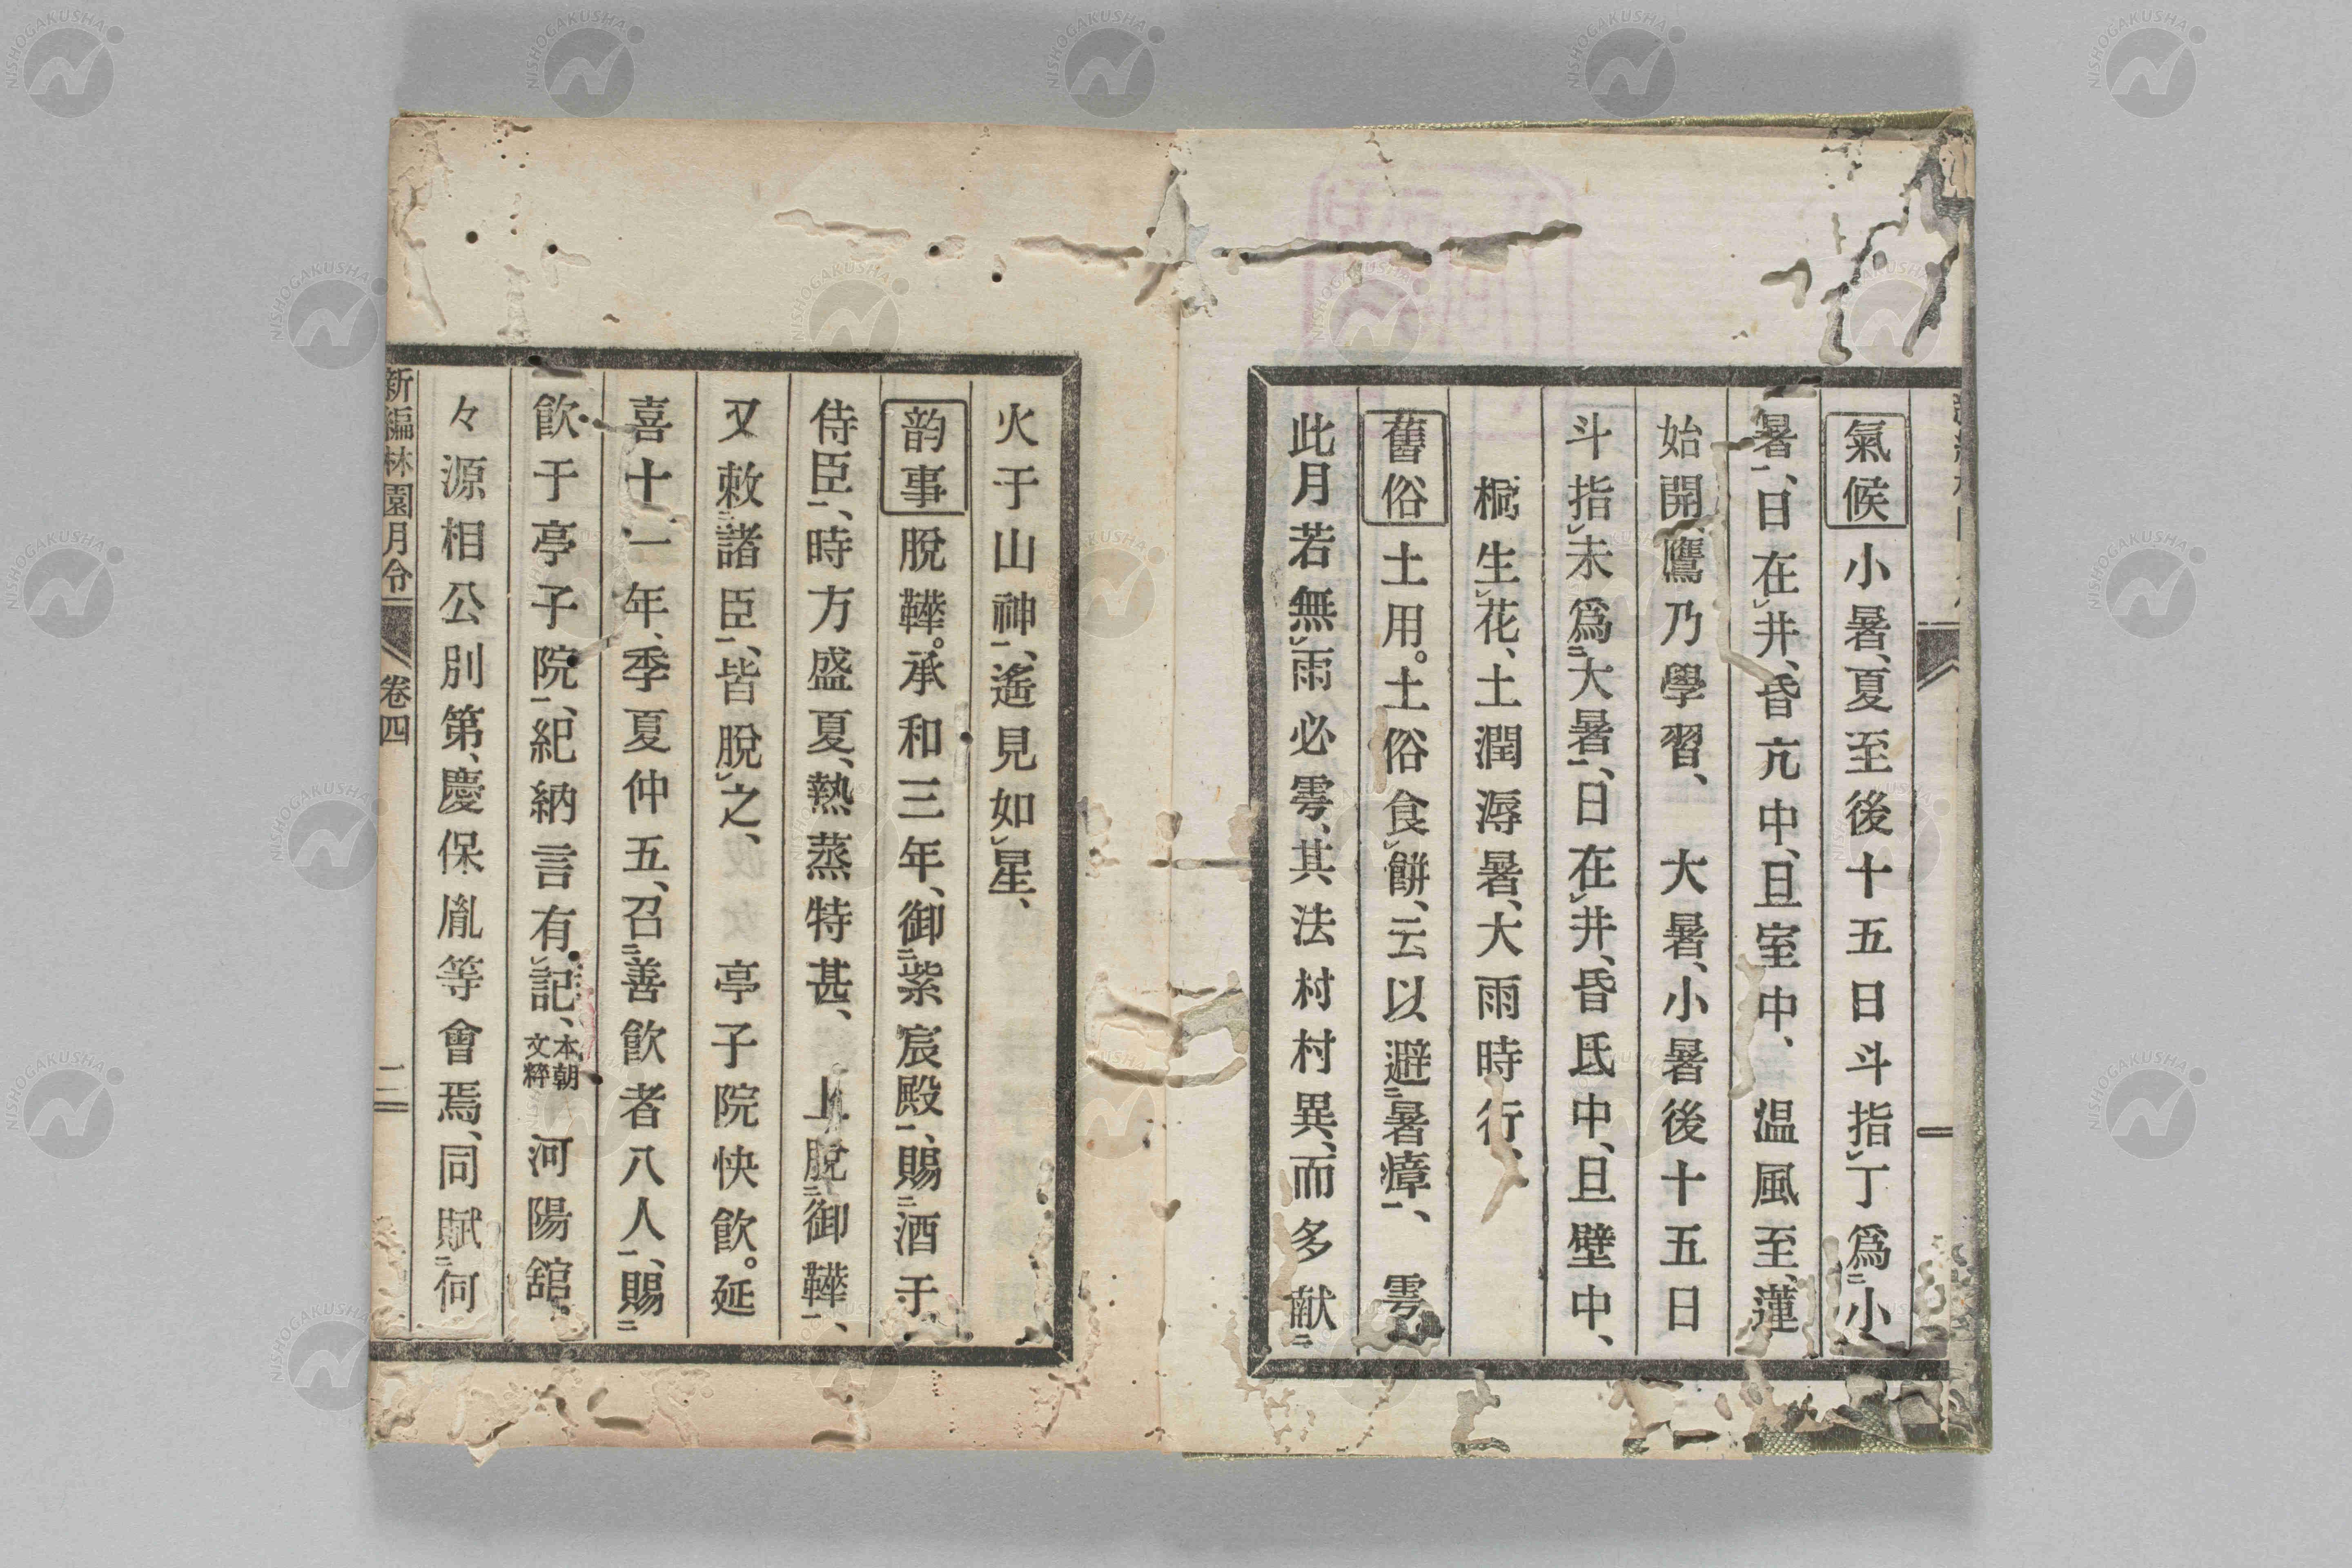 氣候 小暑、夏至後十五日斗指㆑丁爲㆓小
暑㆒、日在㆑井、昏亢中、旦室中、 温風至、蓮
始開、鷹乃學習、 大暑、小暑後十五日
斗指㆑未爲㆓大暑㆒、日在㆑井、昏氐中、旦壁中、
桐生㆑花、土潤溽暑、大雨時行、
舊俗 土用。土俗食㆑餅、云以避㆓暑瘴㆒、 雩
此月若無㆑雨必雩、其法村村異、而多献㆓
火于山神㆒、遙見如㆑星、
韵事 脫鞾。承和三年、御㆓紫宸殿㆒、賜㆓酒于
侍臣㆒、時方盛夏、熱蒸特甚、 上脫㆓御鞾㆒、
又敕㆓諸臣㆒、皆脫㆑之、 亭子院快飮。延
喜十一年、季夏仲五、召㆓善飮者八人㆒、賜㆓
飮于亭子院㆒、紀納言有㆑記、本朝文粹 河陽舘。
々源相公別第、慶保胤等會焉、同賦㆓何
新編林園月令 卷四 二
NISHOGAKUSHA